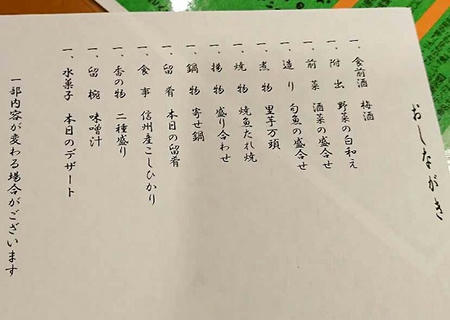 おしながき
一、食前酒 梅酒
一、附出 野菜の白和え
一、前菜 酒菜の盛合せ
一、造り 旬魚の盛合せ
一、煮物 里芋万頭
一、焼物 焼魚たれ焼
一、揚物 盛り合わせ
一、鍋物 寄せ鍋
一、留肴 本日の留肴
一、食事 信州産こしひかり
一、香の物 二種盛り
一、留椀 味噌汁
一、水菓子 本日のデザート
一部内容が変わる場合がございます